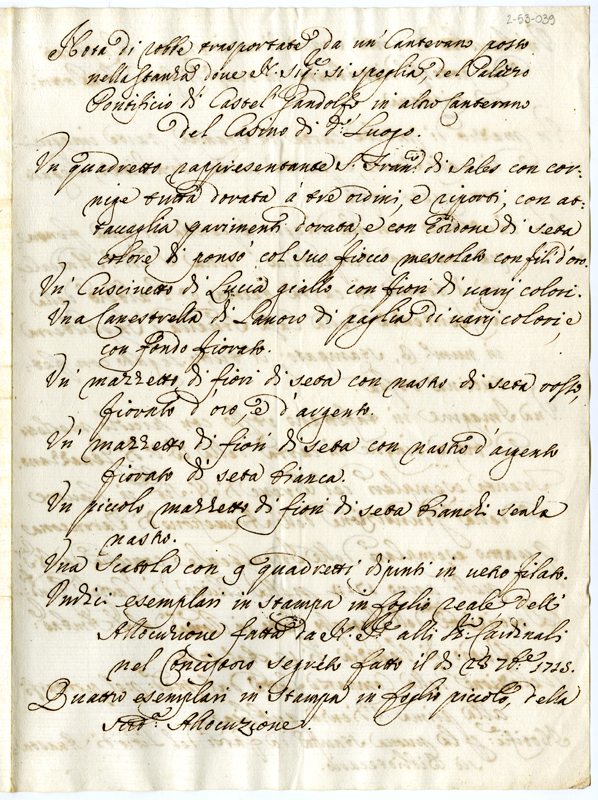 2-53-039
Nota di robbe trasportate da un' Canterano posto
nella stanza dove N. Sig.e si spoglia, del Palazzo
Pontificio di Castel Gandolfo in altro Canterano
del Casino di d.o Luogo.
Un quadretto rappresentante S. Fran.co di Sales con cor-
nige tutta dorata á tre ordini, e riporti, con at-
taccaglia pariment' dorata, e con cordone di seta
colore di ponsó col suo fiocco mescolato con fili d'oro.
Un' Cuscinetto di Lucca giallo con fiori di varij colori.
Una Canestrella di Lavoro di paglia di varij colori, e
con fondo fiorato.
Un' mazzetto di fiori di seta con nastro di seta
fiorato d'oro, e d'argento.
Un' mazzetto di fiori di seta con nastro d'argento
fiorato di seta bianca.
Un piccolo mazzetto di fiori di seta bianchi senza
nastro.
Una Scattola con 9 quadretti dipinti in vetro filato.
Undici esemplari in stampa in foglio reale dell'
Allocuzione fatta da N. S.re alli SS.ri Cardinali
nel Concistoro segreto fatto il di
Quattro esemplari in stampa in foglio piccolo, della
Allocuzione.